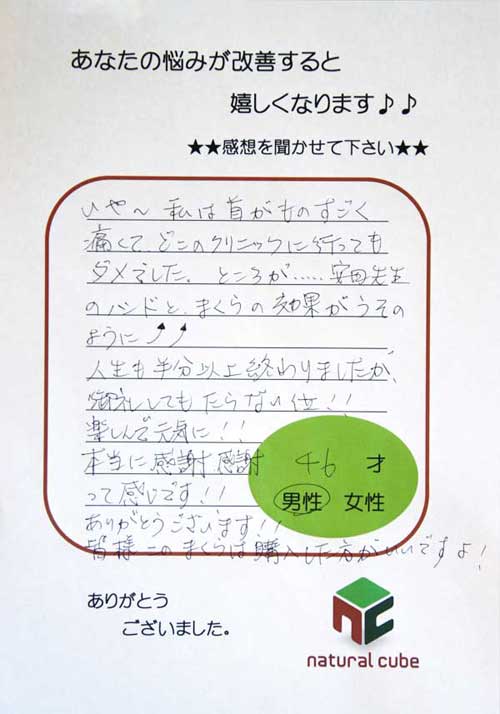 あなたの悩みが改善すると
嬉しくなります♪♪
★★感想を聞かせて下さい★★
いや〜私は首がものすごく
痛くて、どこのクリニックに行っても
ダメでした。ところが……安田先生
のハンドと、まくらの効果がうその
ように⤴⤴
人生も半分以上終わりましたが、
してもたらない位!!
楽しんで元気に!!
本当に感謝感謝 46 才
って感じです!! 男性 女性
ありがとうございます!!
皆様このまくらは購入した方がいいですよ!
ありがとう
ございました。
nc
natural cube